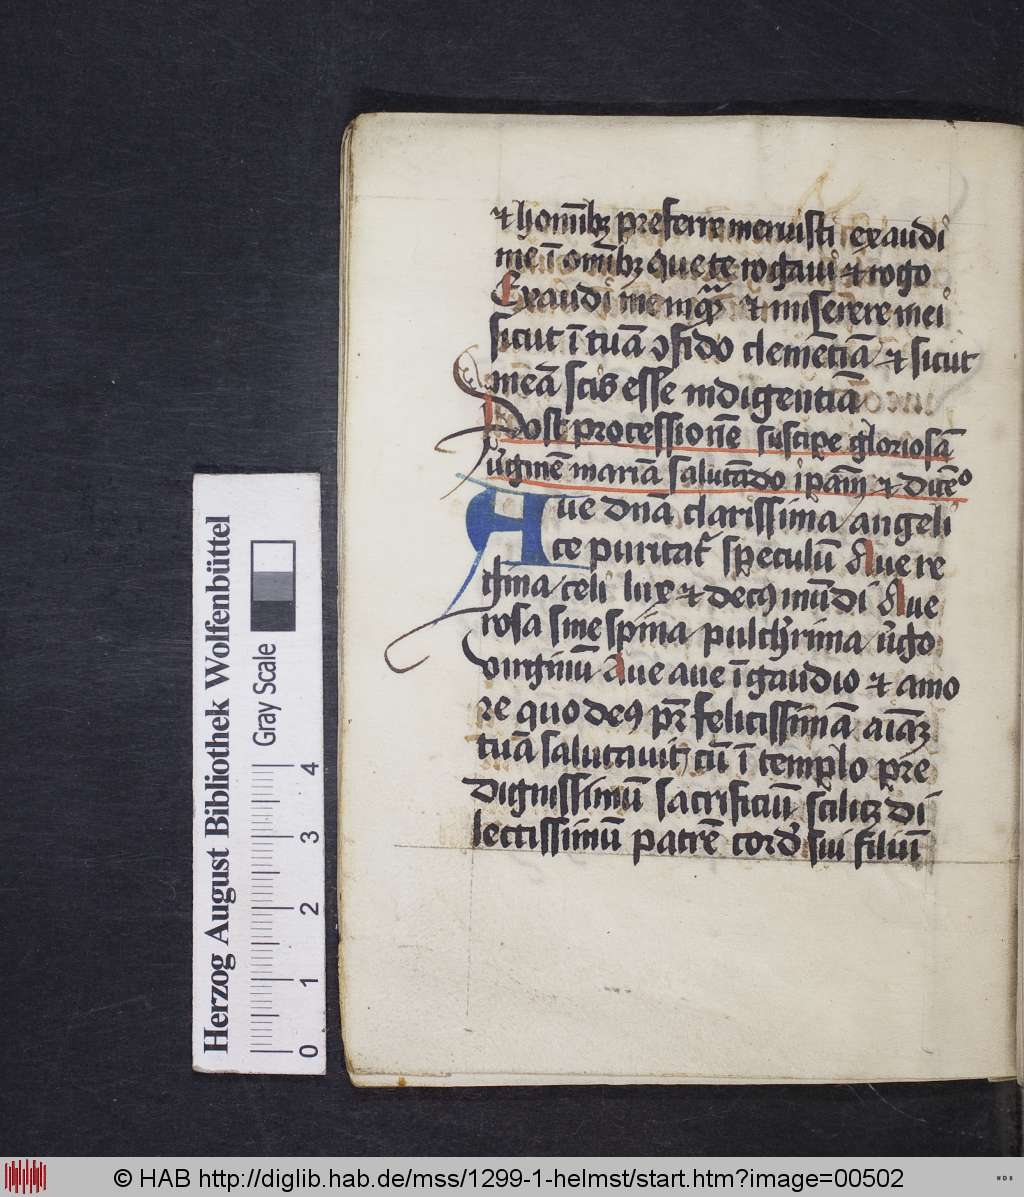 ⁊ homı̄bꝫ preferre meruisti exaudi
me ī om̄ibꝫ que te rogaui ⁊ rogo
Exaudi me inqͣꝫ ⁊ miserere mei
sicut ī tuā ꝯfido clemētiā ⁊ sicut
meā scis esse indigentiā
Post processionē suscipe gloriosā
v̓ginē mariā salutādo ip̄am ⁊ dicē°
Aue dn̄a clarissima angeli
ce puritat̾ speculū Aue re
gina celi lux ⁊ decꝰ mūdi Aue
rosa sine spina pulch̓rima v̓go
virginū Aue aue ī gaudio ⁊ amo
re quo deꝰ pr̄ felicissimā aīaꝫ
tuā salutauit cū ī templo pr̄e
dignissimū sacrificiū scilicꝫ di
lectissimū patrē cord̓ sui filiū
Herzog August Bibliothek Wolfenbüttel
Gray Scale
0 1 2 3 4
© HAB http://diglib.hab.de/mss/1299-1-helmst/start.htm?image=00502